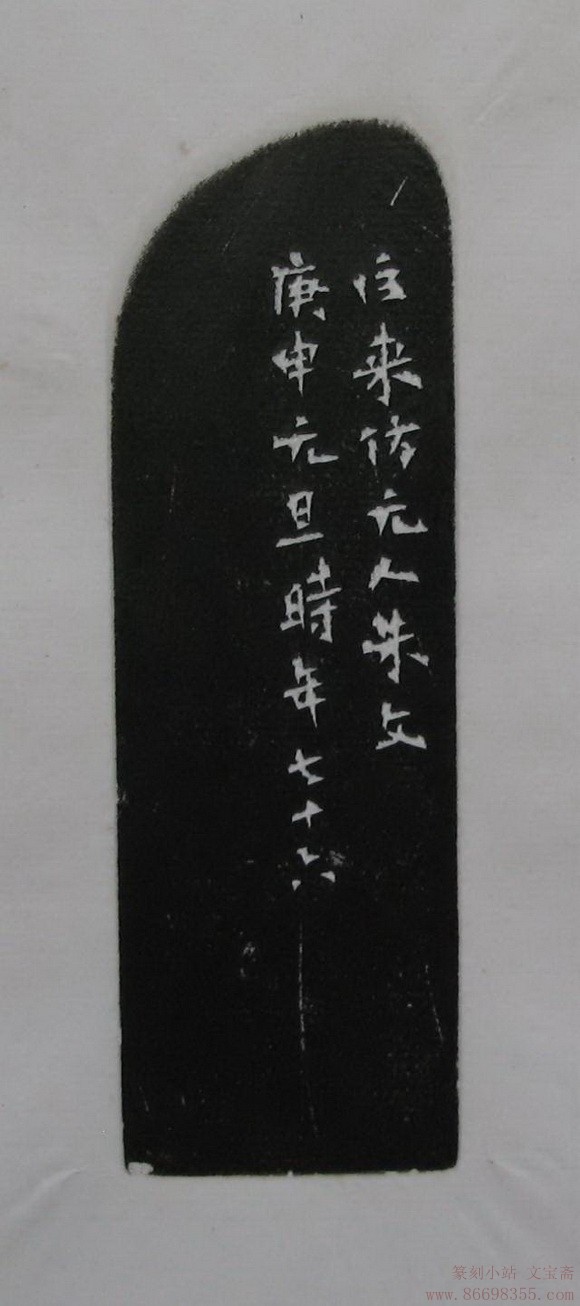 巨来仿元人朱文
庚申元旦時年七十六
篆刻小站 文宝斋
www.86698355.com